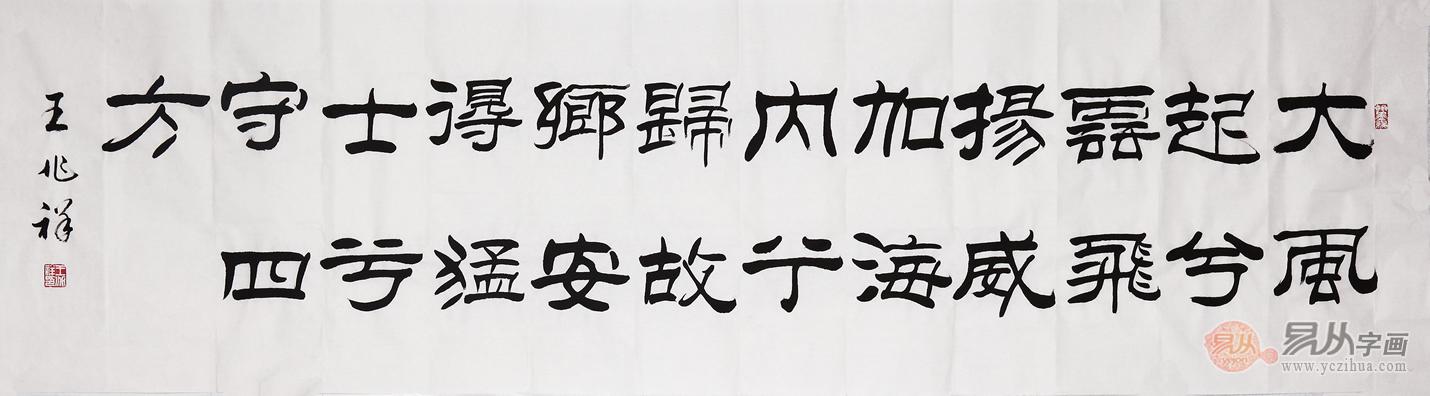 大風
起兮
雲飛
揚威
加海
内兮
歸故
鄉安
得猛
士兮
守四
方
王兆祥
易从
易从字画
www.yczihua.com